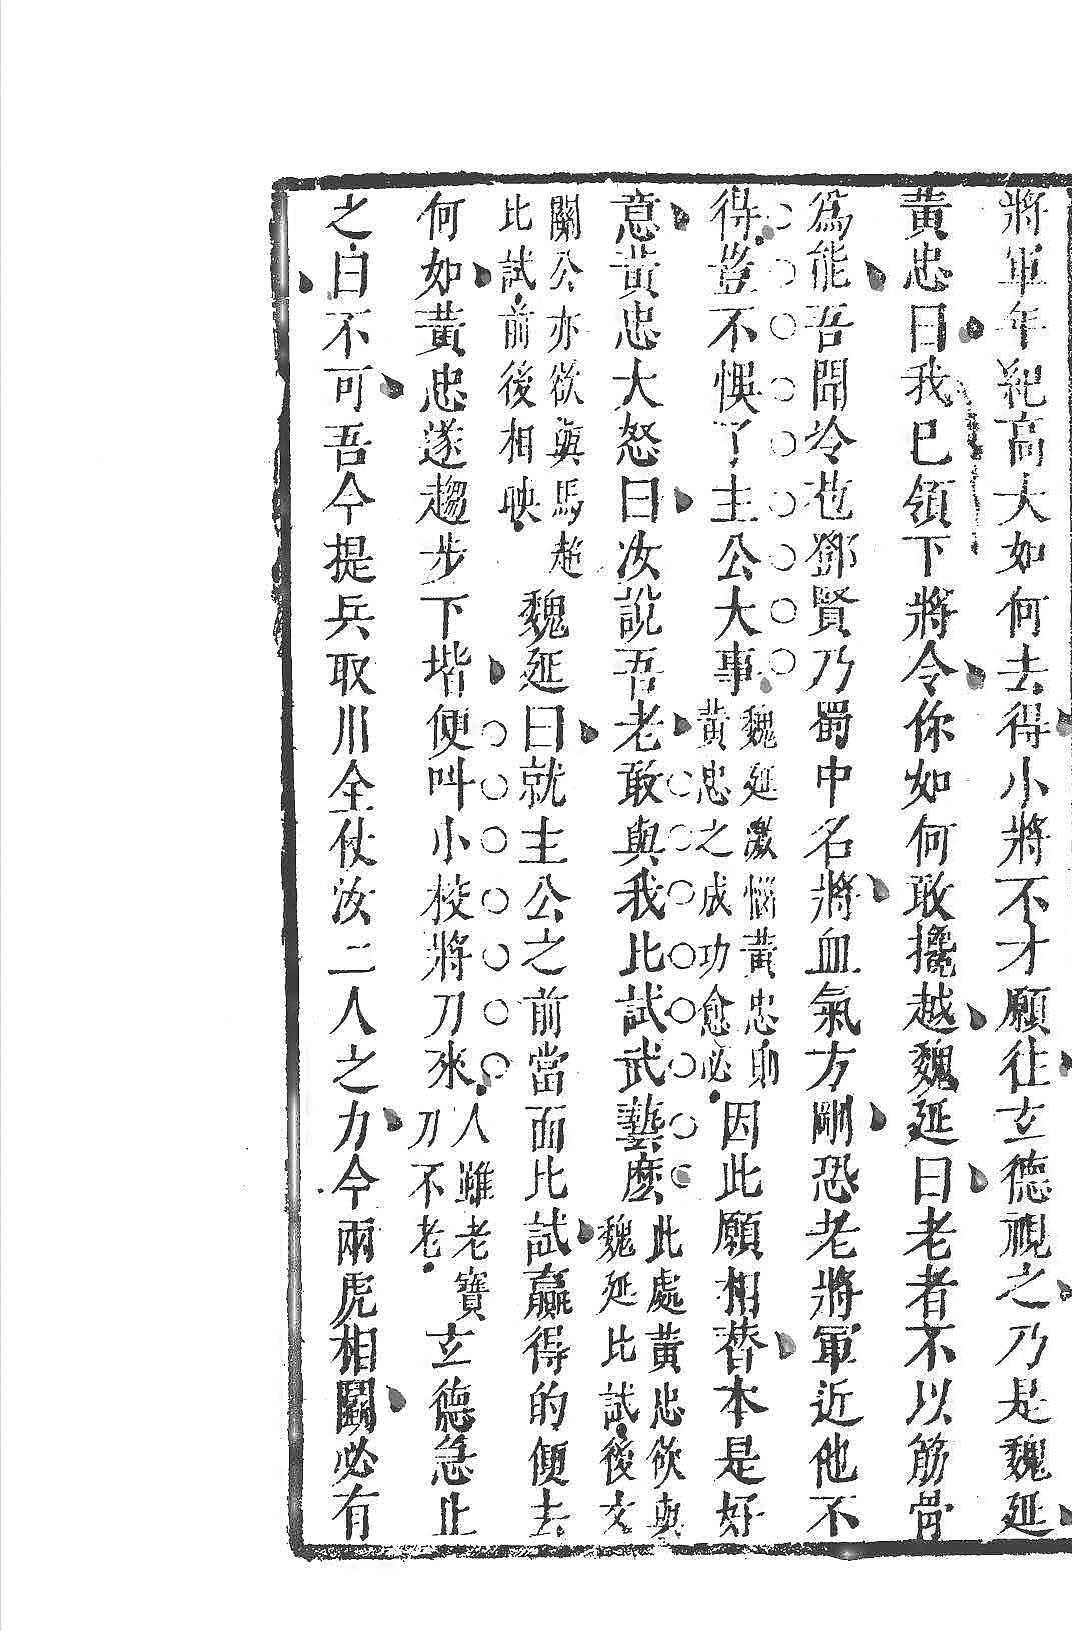 將軍年紀高大如何去得小將不才願往玄德視之乃是魏延
黃忠曰我已領下將令你如何敢攙越魏延曰老者不以筋骨
爲能吾聞冷苞鄧賢乃蜀中名將血氣方剛恐老將軍近他不
得豈不悞了主公大事魏延激惱黃忠則黃忠之成功愈必因此願相替本是好
意黃忠大怒曰汝說吾老敢與我比試武藝麽此處黃忠欲與魏延比試後文
關公亦欲與馬超比試前後相映魏延曰就主公之前當面比試贏得的便去
何如黃忠遂趨步下堦便叫小校將刀來人雖老寶刀不老玄德急止
之曰不可吾今提兵取川全仗汝二人之力今兩虎相鬭必有